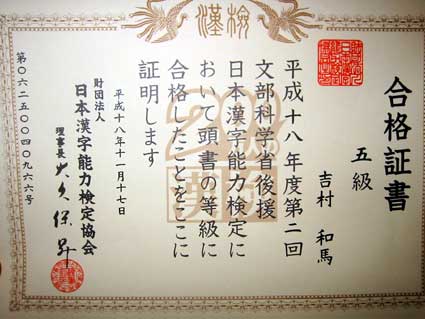 漢検
合格証書
五級
吉村 和馬
平成十八年度第二回
文部科学省後援
日本漢字能力検定に
おいて頭書の等級に
合格したことをここに
証明します
平成十八年十一月十七日
財団法人
日本漢字能力検定協会
理事長 大久保昇
第〇六二五〇〇四〇九六六号